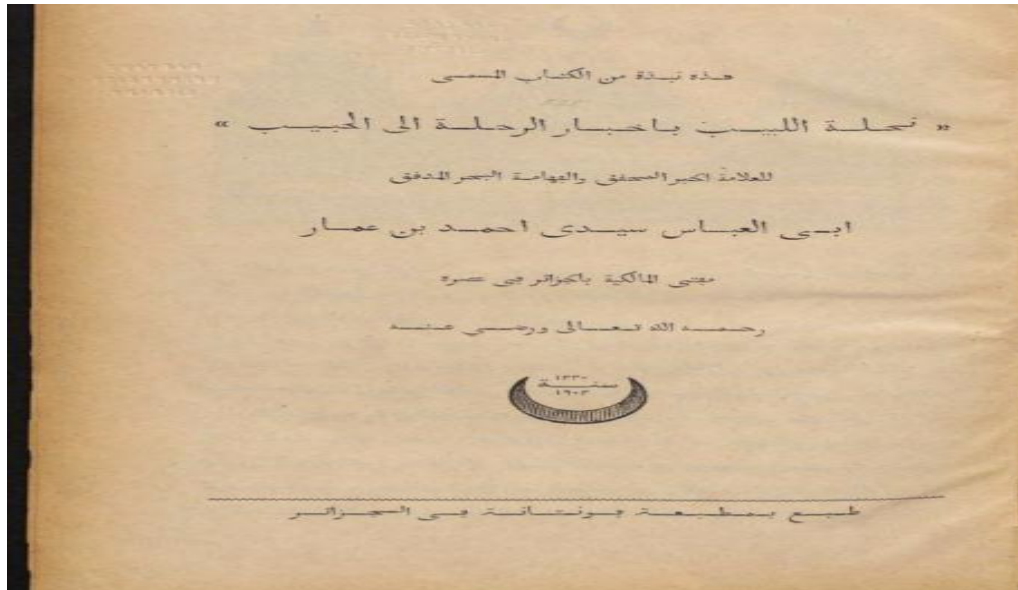 هذه نبذة من الكتاب المسمى
« نحلة اللبيب باخبار الرحلة الى الحبيب »
للعلامة الحبر المحقق والفهامة البحر المدقق
ابى العباس سيدى احمد بن عمار
مفتى المالكية بالجزائر فى عصره
رحمه الله تعالى ورضى عنه
١٣٢٠
سنة
١٩٠٢
طبع بمطبعة فونتانة فى الجزائر